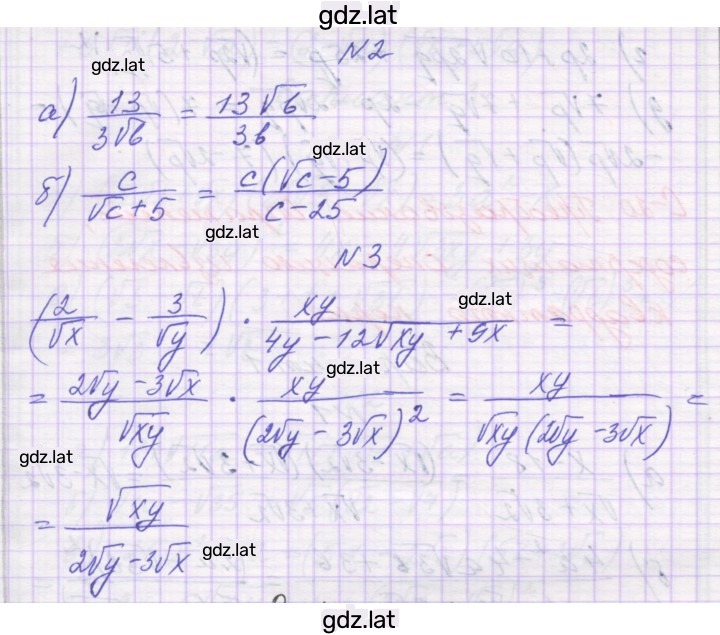 gdz.lat
N2
gdz.lat
а) 13/(3√b) = 13√b/(3b)
gdz.lat
б) c/(√c+5) = c(√c-5)/(c-25)
gdz.lat
N3
gdz.lat
(2/√x - 3/√y) · xy/(4y-12√xy+9x) =
gdz.lat
= (2√y-3√x)/√xy · xy/(2√y-3√x)² = xy/(√xy(2√y-3√x)) =
gdz.lat
= √xy/(2√y-3√x)
gdz.lat
gdz.lat